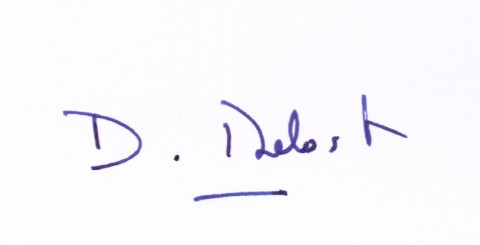 D. Delost